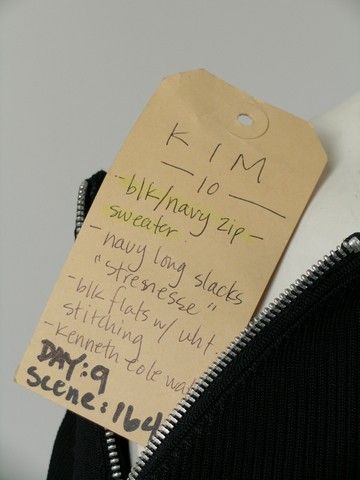 KIM
— 10 —
- blk/navy zip -
sweater
- navy long slacks
"stresnesse"
- blk flats w/ wht
stitching
- kenneth cole
DAY: 9
Scene: 164